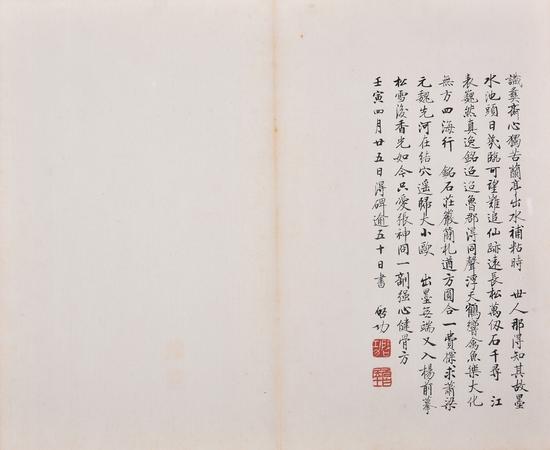 識彝齋心獨苦蘭亭出水補粘時 世人那得知其故墨
水池頭日幾臨可望難追仙跡遠長松萬仞石千尋 江
表巍然真逸銘迢迢魯郡得同聲浮天鶴響禽魚樂大化
無方四海行 銘石莊嚴簡札遒方圓合一費探求蕭梁
元魏先河在結穴遥歸大小歐 出墨無端又入楊前摹
松雪後香光如今只愛張神冏一劑强心健骨方
壬寅四月廿五日得碑逾五十日書 啟功